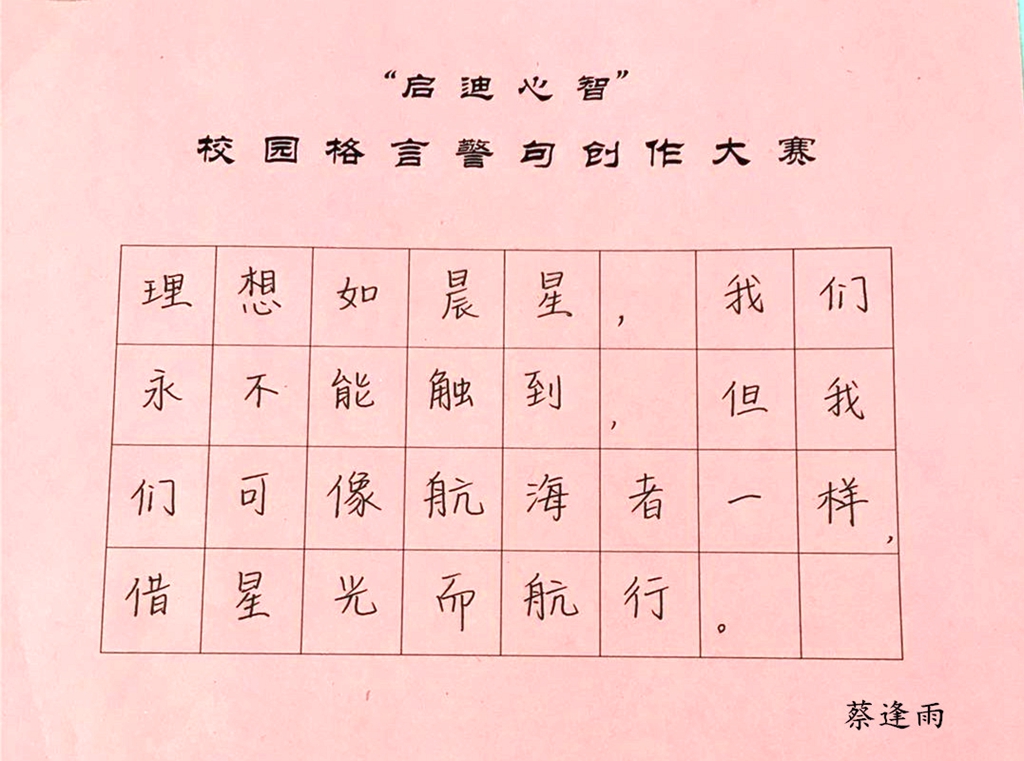 “启迪心智”
校园格言警句创作大赛
理想如晨星，我们
永不能触到，但我
们可像航海者一样，
借星光而航行。
蔡逢雨